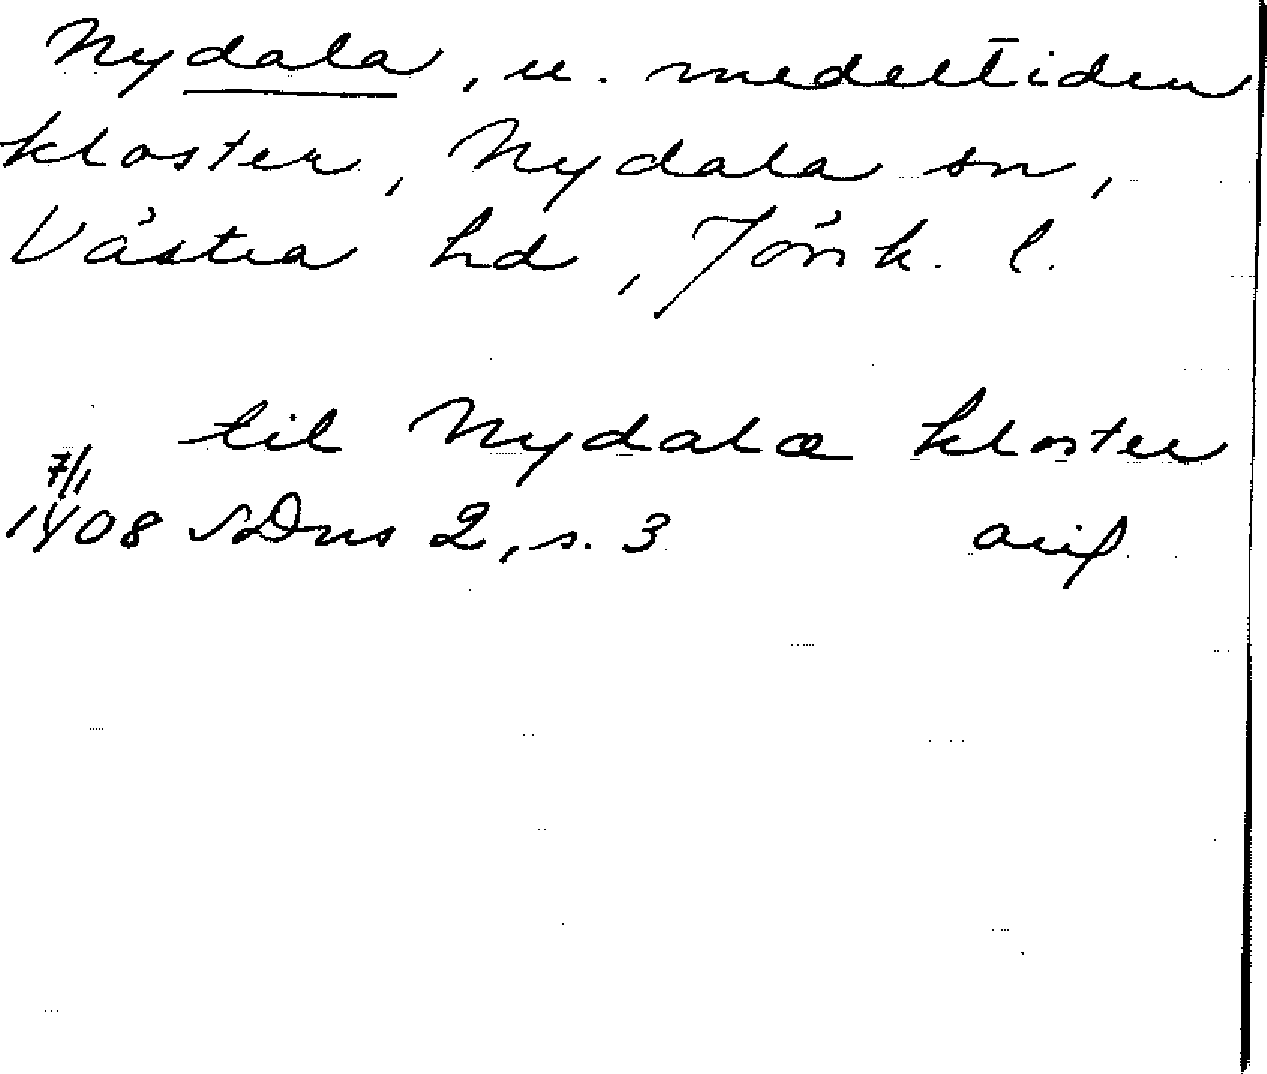 Nydala, u. medeltiden
kloster, Nydala sn,
Västra hd, Jönk. l.
til Nydalæ kloster
7/1
1408 SDns 2, s. 3 avip